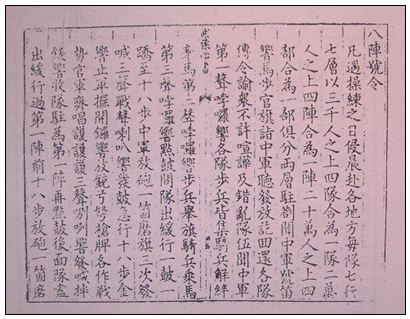 八陣號令
凡遇操練之日侵晨赴各地方每隊七行
七層以三千人之上四隊合為一隊二萬
人之上四陣合為一陣二十萬人之上四
部合為一部俱分兩層駐劄聞中軍號笛
響馬步官旗詣中軍聽發放訖囬還各隊
傳令諭衆不許喧譁及錯亂隊伍聞中軍
第一聲孛囉響各隊步兵皆集騎兵解絆
牽馬第二聲孛囉響步兵舉旗騎兵乘馬
第三聲孛囉響點鼓開隊出緩行一鼓一
蹻至十八步中軍放砲一箇磨旗三次發
喊三聲戰聲喇叭響發皷急行十八步金
響止平擺開鑼響放銃弓弩槍牌各作戰
勢官軍齊唱護護護三聲喇叭響發喊摔
鈸響收隊駐為第一陣再點鼓後面隊盡
出緩行過第一陣前十八步放砲一箇磨